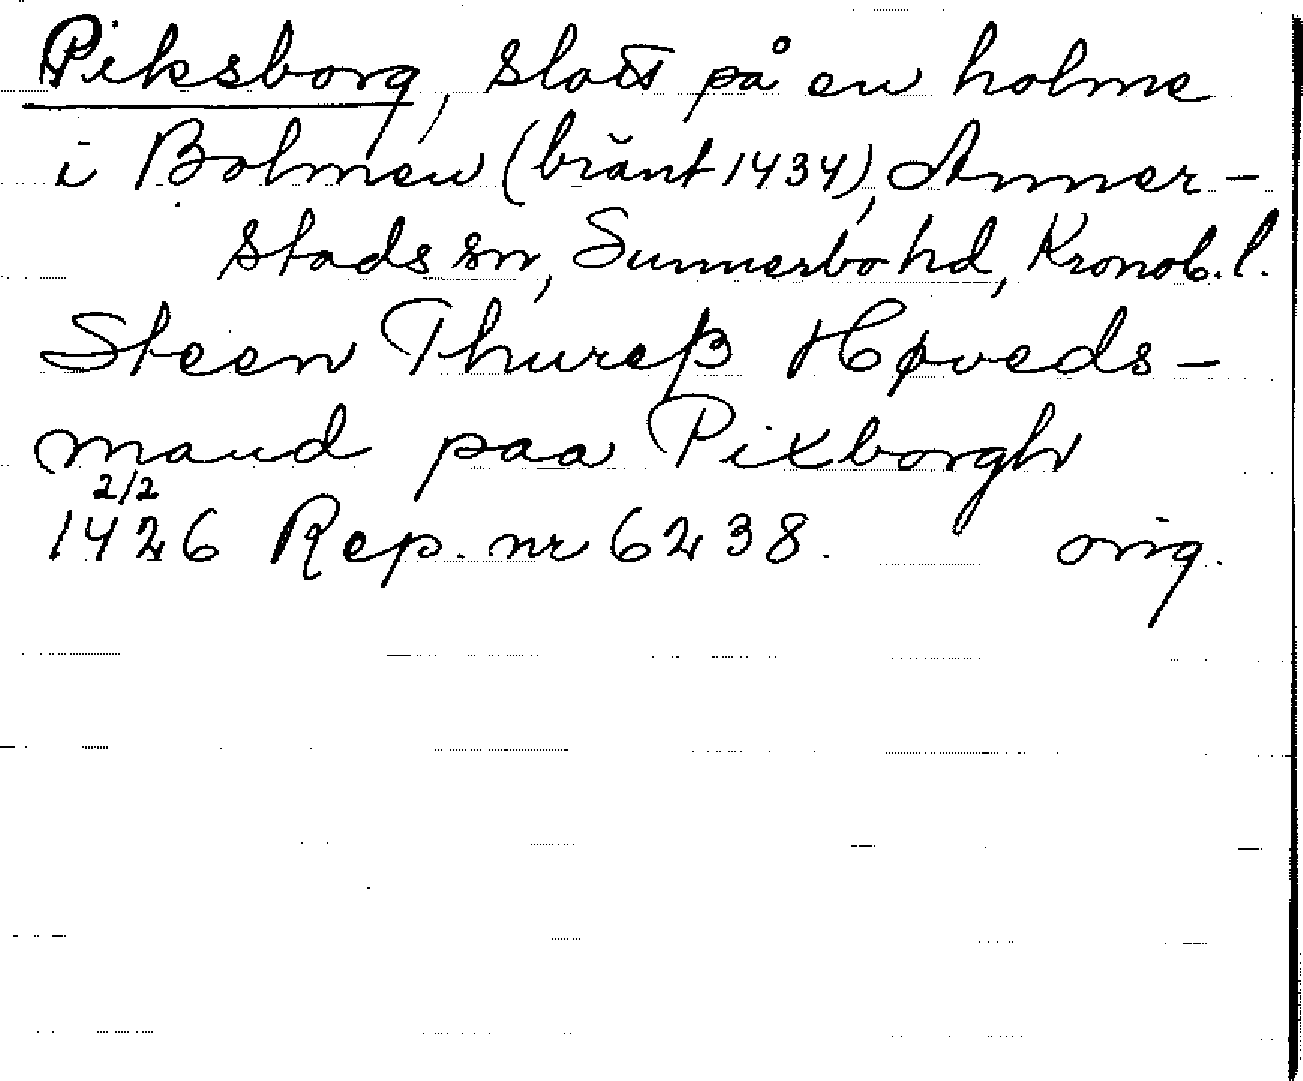 Piksborg, slott på en holme
i Bolmen (bränt 1434), Anner-
stads sn, Sunnerbo hd, Kronob. l.
Steen Thureß Høveds-
mand paa Pixborgh
2/2
1426 Rep. nr 6238. orig.